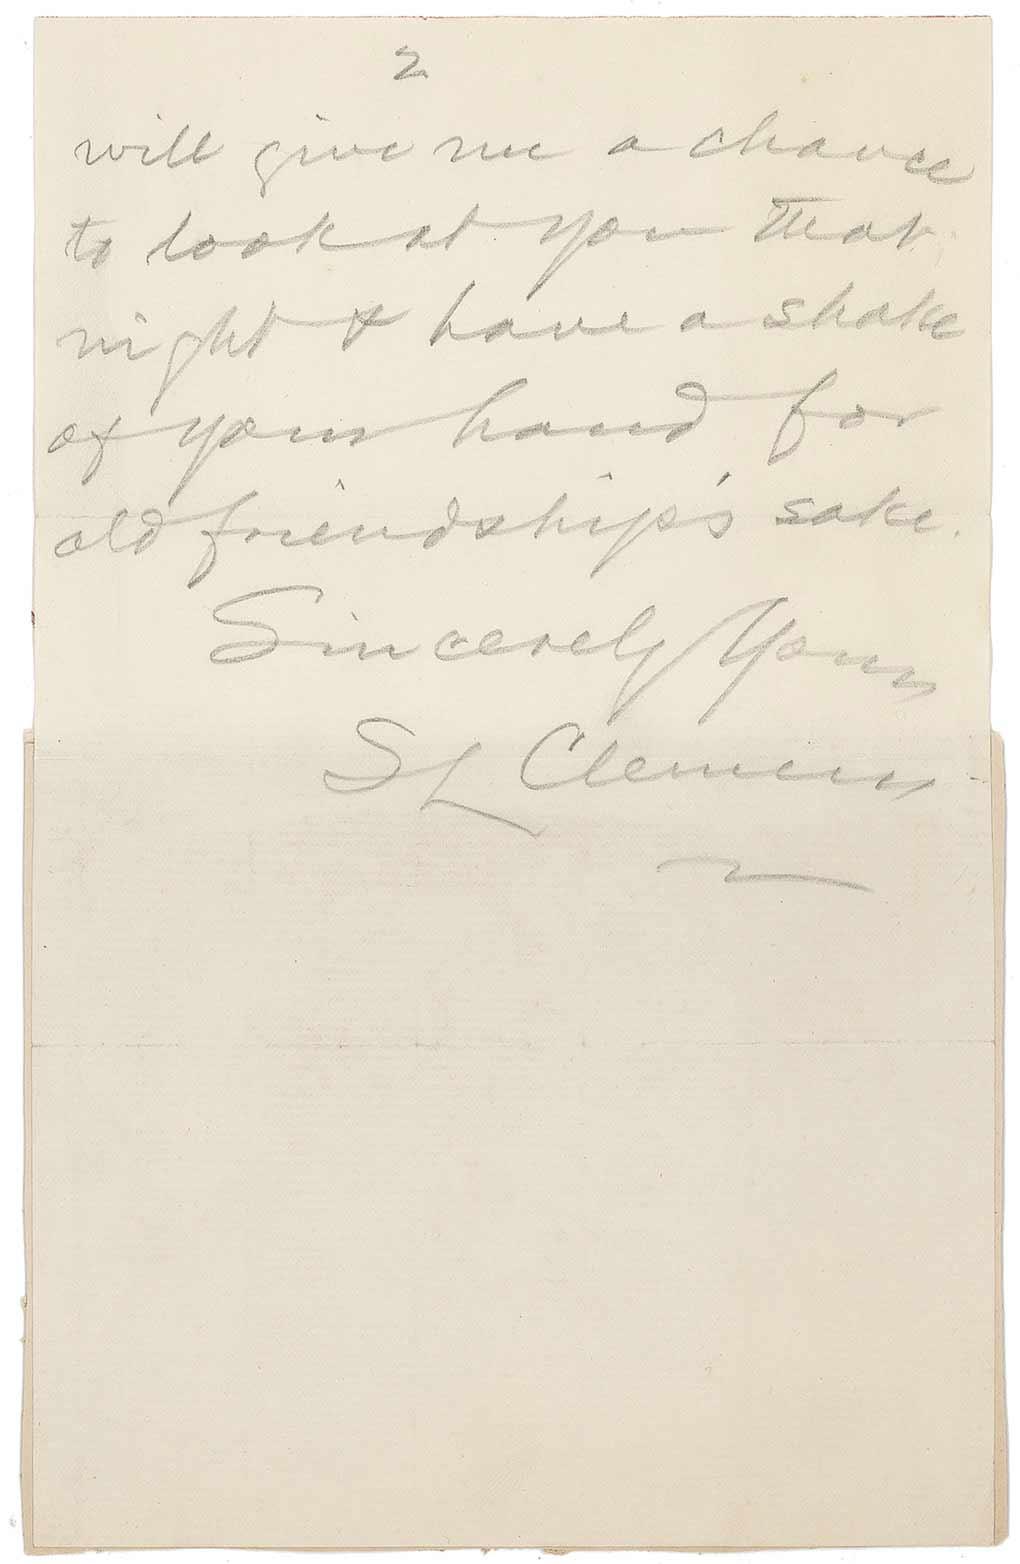 2
will give me a chance
to look at you that
night & have a shake
of your hand for
old friendship's sake.
Sincerely Yours
SL Clemens